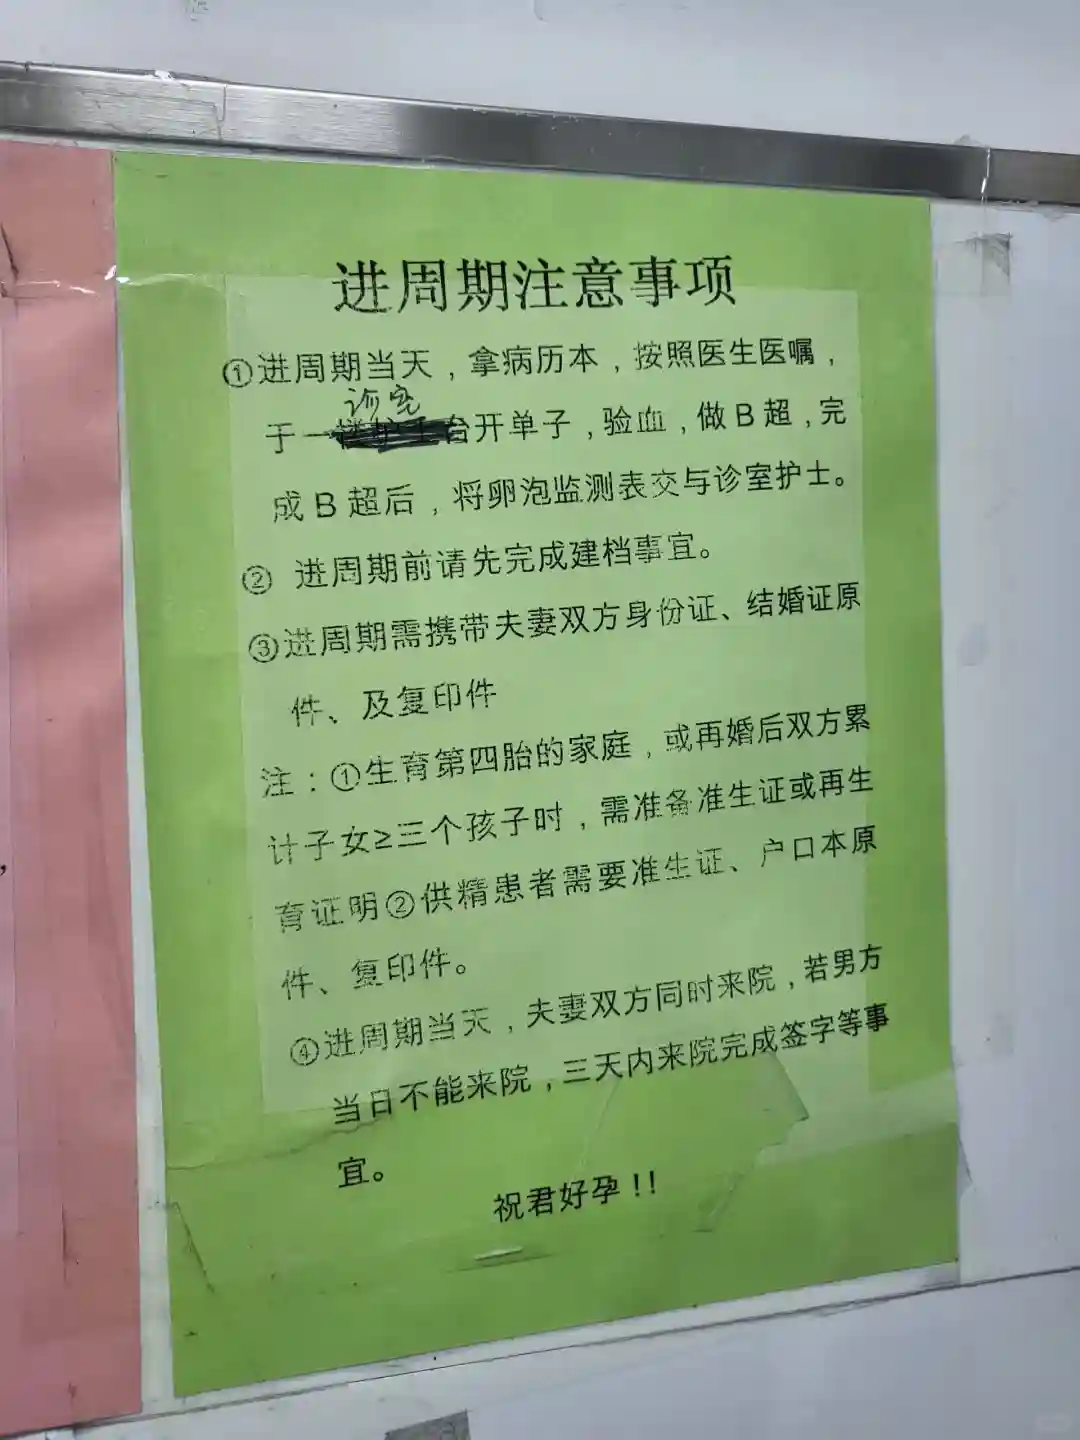 进周期注意事项
①进周期当天，拿病历本，按照医生医嘱，
诊室
于一楼护士台开单子，验血，做B超，完
成B超后，将卵泡监测表交与诊室护士。
② 进周期前请先完成建档事宜。
③进周期需携带夫妻双方身份证、结婚证原
件、及复印件
注：①生育第四胎的家庭，或再婚后双方累
计子女≥三个孩子时，需准备准生证或再生
育证明②供精患者需要准生证、户口本原
件、复印件。
④进周期当天，夫妻双方同时来院，若男方
当日不能来院，三天内来院完成签字等事
宜。
祝君好孕!!